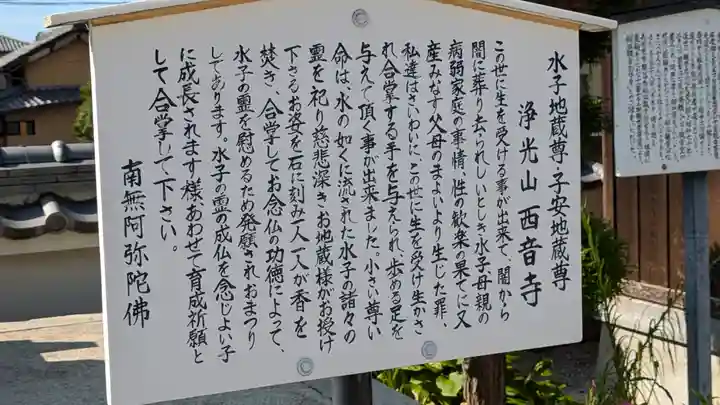 水子地蔵尊・子安地蔵尊
浄光山 西音寺
この世に生を受ける事が出来て、闇から
闇に葬り去られしいとしき水子母親の
病弱家庭の事情、性の歓楽の果てに又
産みなす父母のまよいより生じた罪、
私達はさいわいに、この世に生を受け生かさ
れ合掌する手を与えられ、歩める足を
与えて頂く事が出来ました。小さい尊い
命は、水の如くに流された水子の諸々の
霊を祀り慈悲深きお地蔵様がお授け
下さるお姿を石に刻み人一人が香を
焚き、合掌してお念仏の功徳によって、
水子の霊を慰めるため発願され、おまつり
してあります。水子の霊の成仏を念じよい子
に成長されます様あわせて育成祈願と
して合掌して下さい。
南無阿弥陀佛